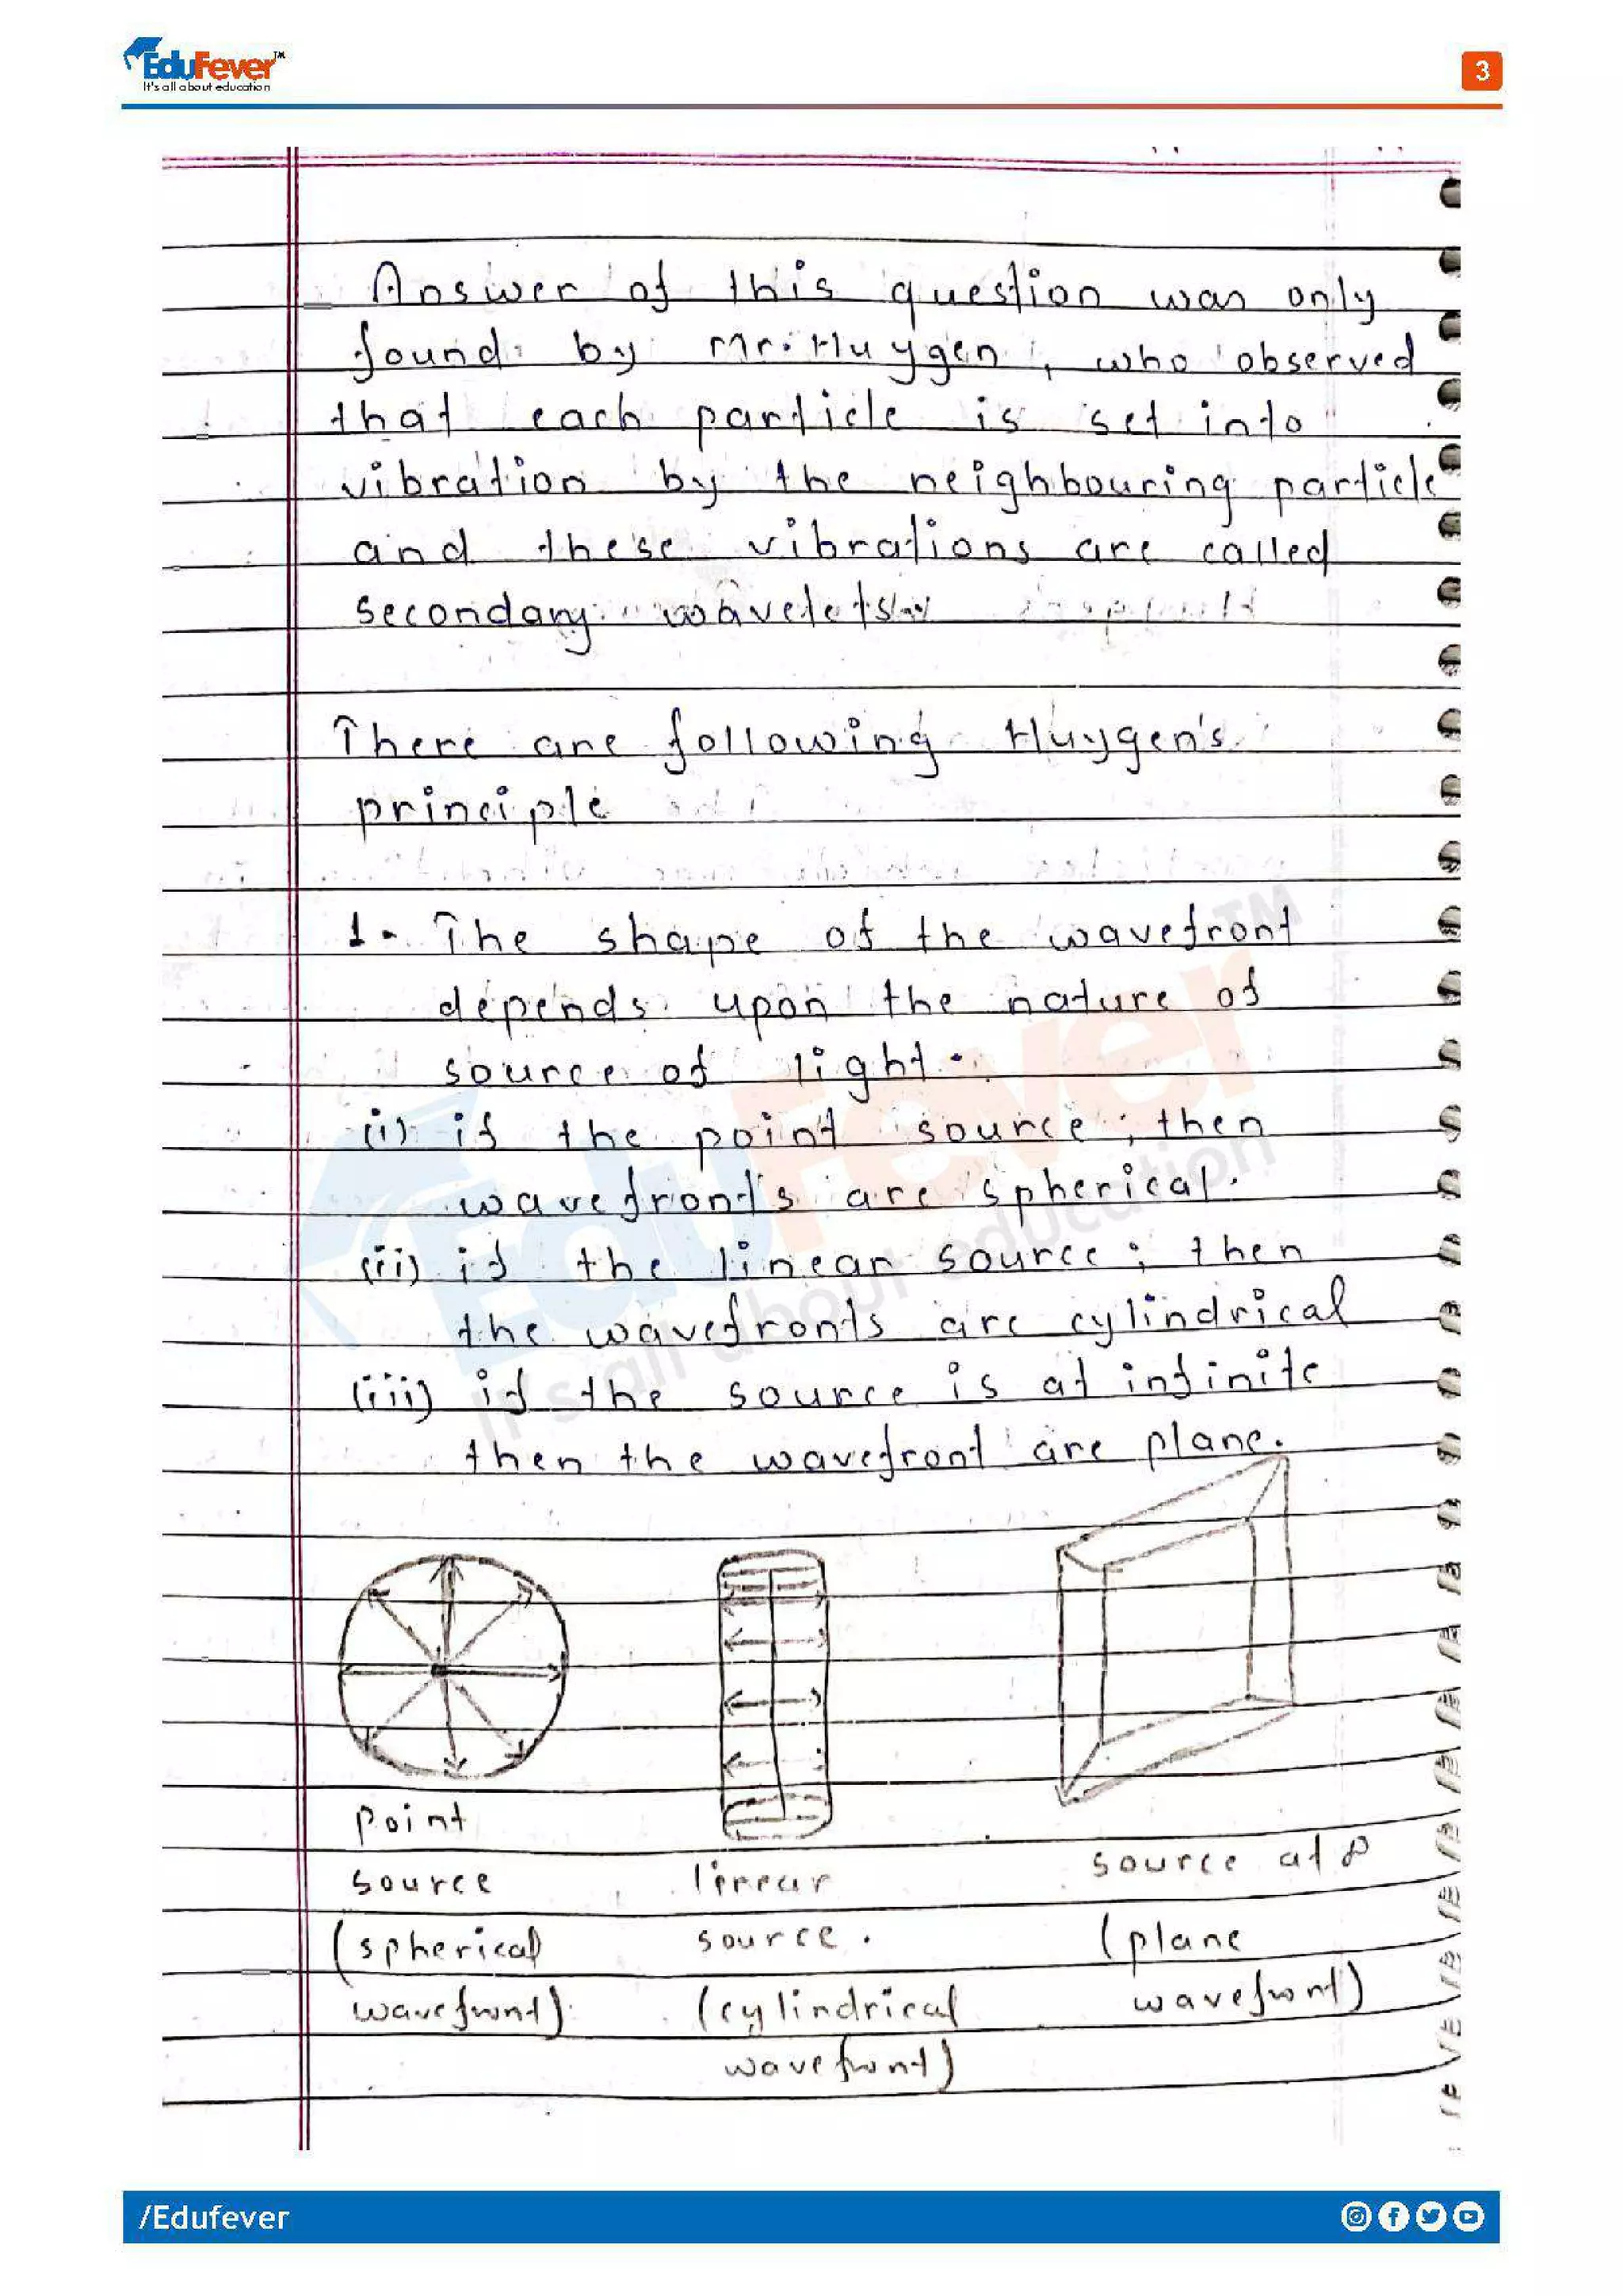 EduFever™
It's all about education
3
Answer of this question was only
found by Mr. Huygen, who observed
that each particle is set into
vibration by the neighbouring particle
and these vibrations are called
secondary wavelets
There are following Huygen's
principle
1. The shape of the wavefront
depends upon the nature of
source of light.
(i) if the point source; then
wavefronts are spherical.
(ii) if the linear source; then
the wavefronts are cylindrical
(iii) if the source is at infinite
then the wavefront are plane.
Point
source
(spherical
wavefront)
linear
source.
(cylindrical
wavefront)
source at ∞
(plane
wavefront)
EduFever™
It's all about education
/Edufever